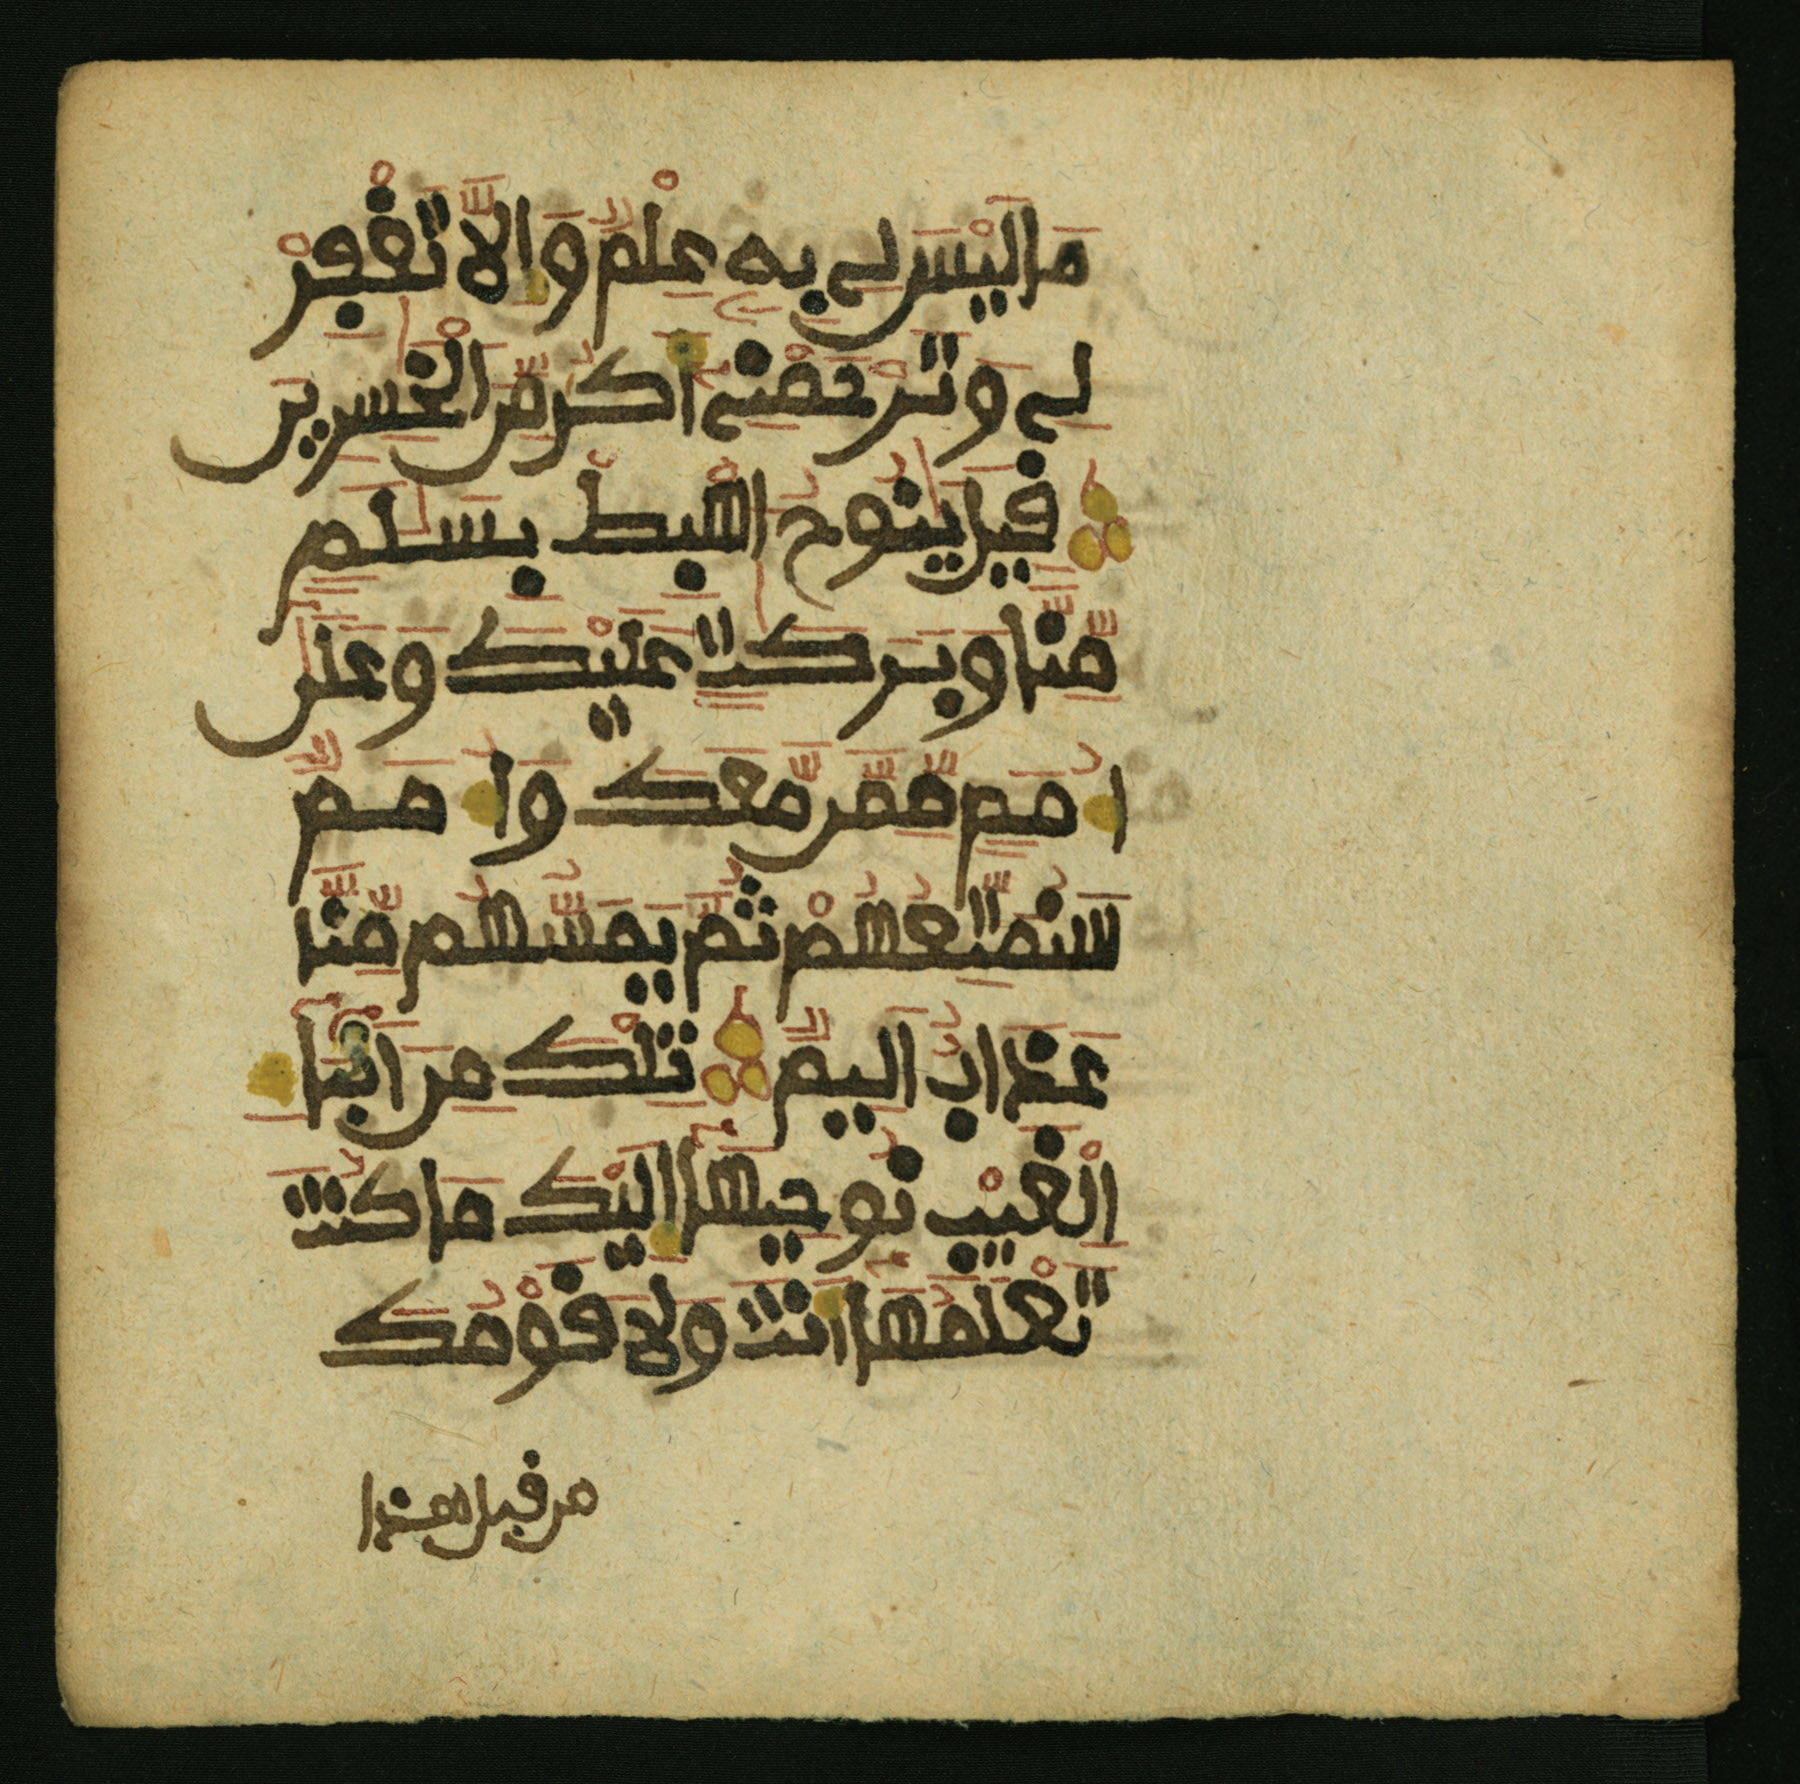 مَا لَيْسَ لِے بِهِۦ عِلْمٌ وَإِلَّا تَغْفِرْ
لِے وَتَرْحَمْنِےٓ أَكُن مِّنَ اَ۬لْخَٰسِرِينَ
قِيلَ يَٰنُوحُ اُ۪هْبِطْ بِسَلَٰمٍ
مِّنَّا وَبَرَكَٰتٍ عَلَيْكَ وَعَلَىٰٓ
أُمَمٍ مِّمَّن مَّعَكَ وَأُمَمٌ
سَنُمَتِّعُهُمْ ثُمَّ يَمَسُّهُم مِّنَّا
عَذَابٌ أَلِيمٌ تِلْكَ مِنْ أَنۢبَآءِ
اِ۬لْغَيْبِ نُوحِيهَآ إِلَيْكَ مَا كُنتَ
تَعْلَمُهَآ أَنتَ وَلَا قَوْمُكَ
من قبل هذا